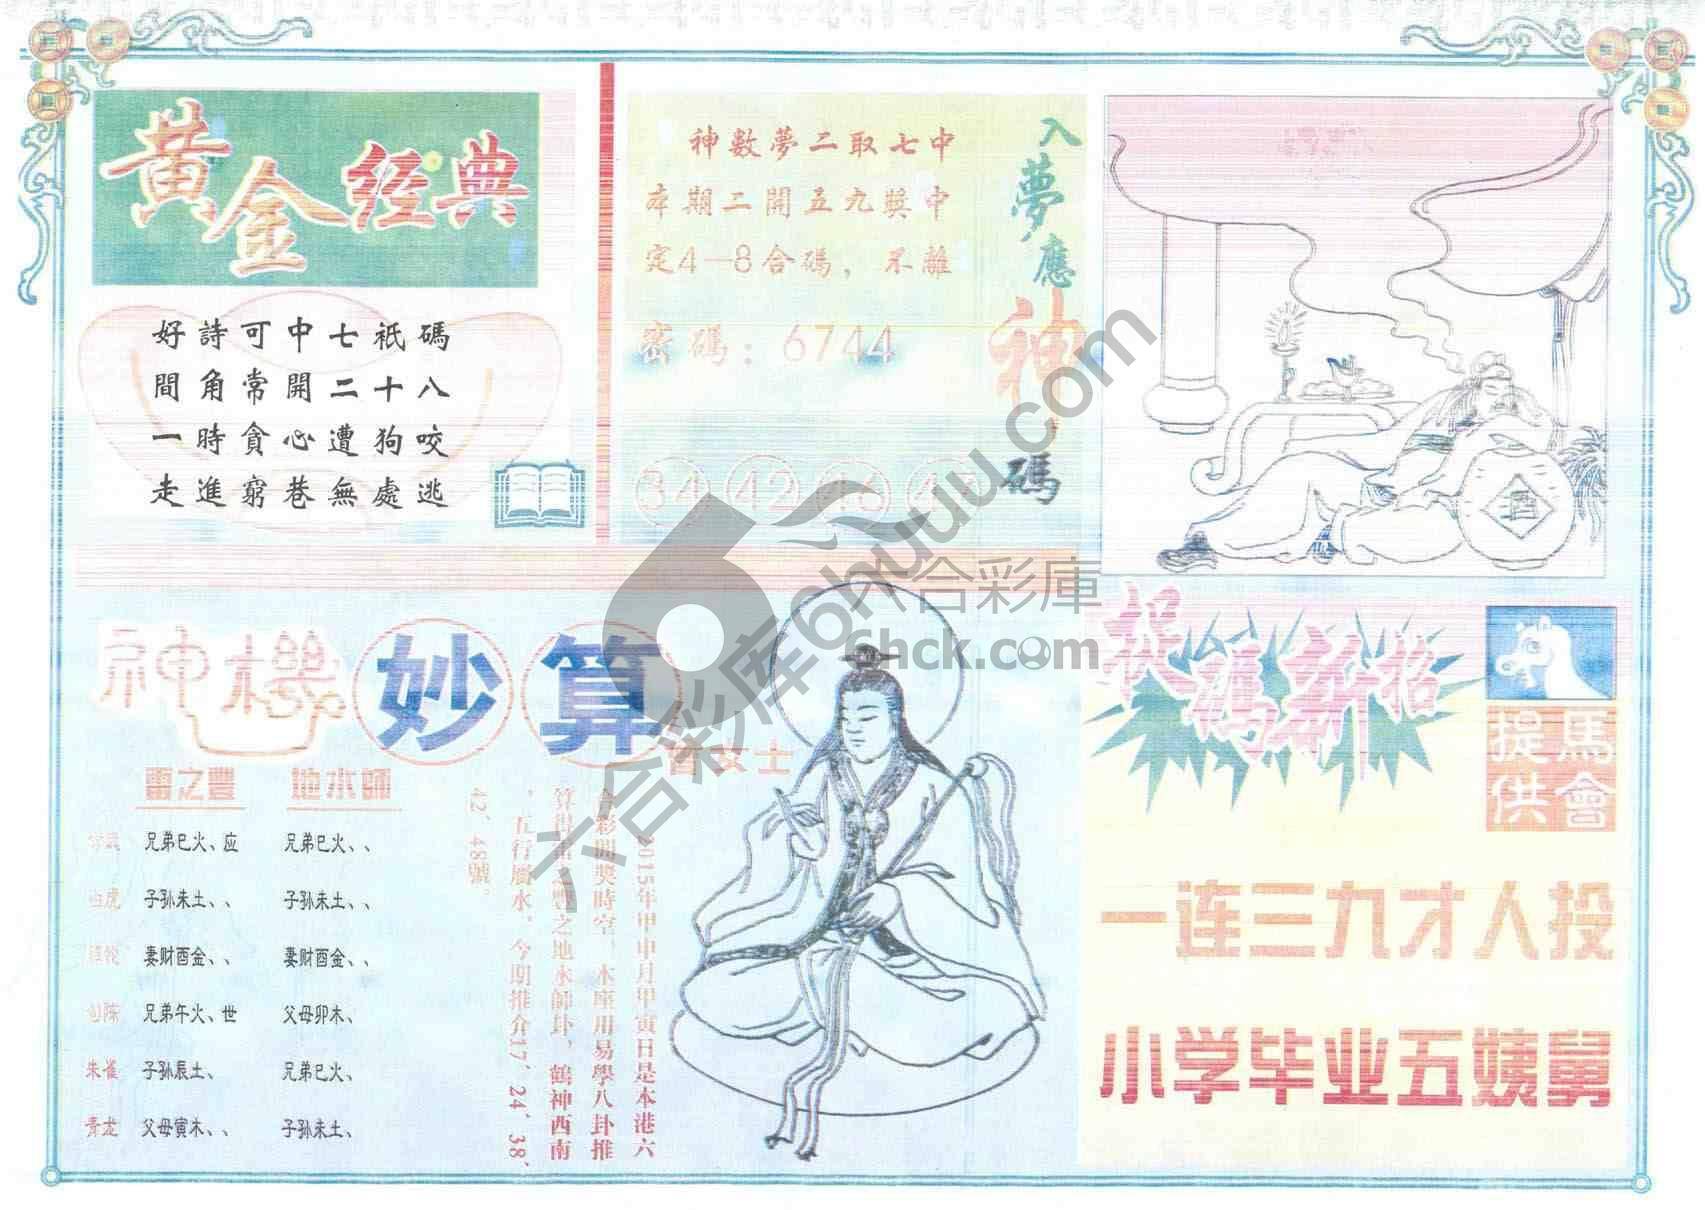 黄金经典
好詩可中七衹碼
間角常開二十八
一時貪心遭狗咬
走進窮巷無處逃
神數夢二取七中
本期二開五九獎中
定4—8合碼，不離
密碼：6744
34 42 46
入夢應神碼
酒
神機妙算
女士
雷之豐 地水師
兄弟巳火、应 兄弟巳火、、
白虎 子孙未土、、 子孙未土、、
妻财酉金、、 妻财酉金、、
勾陈 兄弟午火、世 父母卯木、
朱雀 子孙辰土、 兄弟巳火、
青龙 父母寅木、、 子孙未土、
2015年甲申月甲寅日是本港六
彩開獎時空，本座用易學八卦推
算得雷之豐之地水師卦，鶴神西南
，五行屬水，今期推介17、24、38、
42、48號。
捉碼新招
馬會提供
一连三九才人投
小学毕业五姨舅
六合彩库6huuu.com
六合彩庫
6hck.com